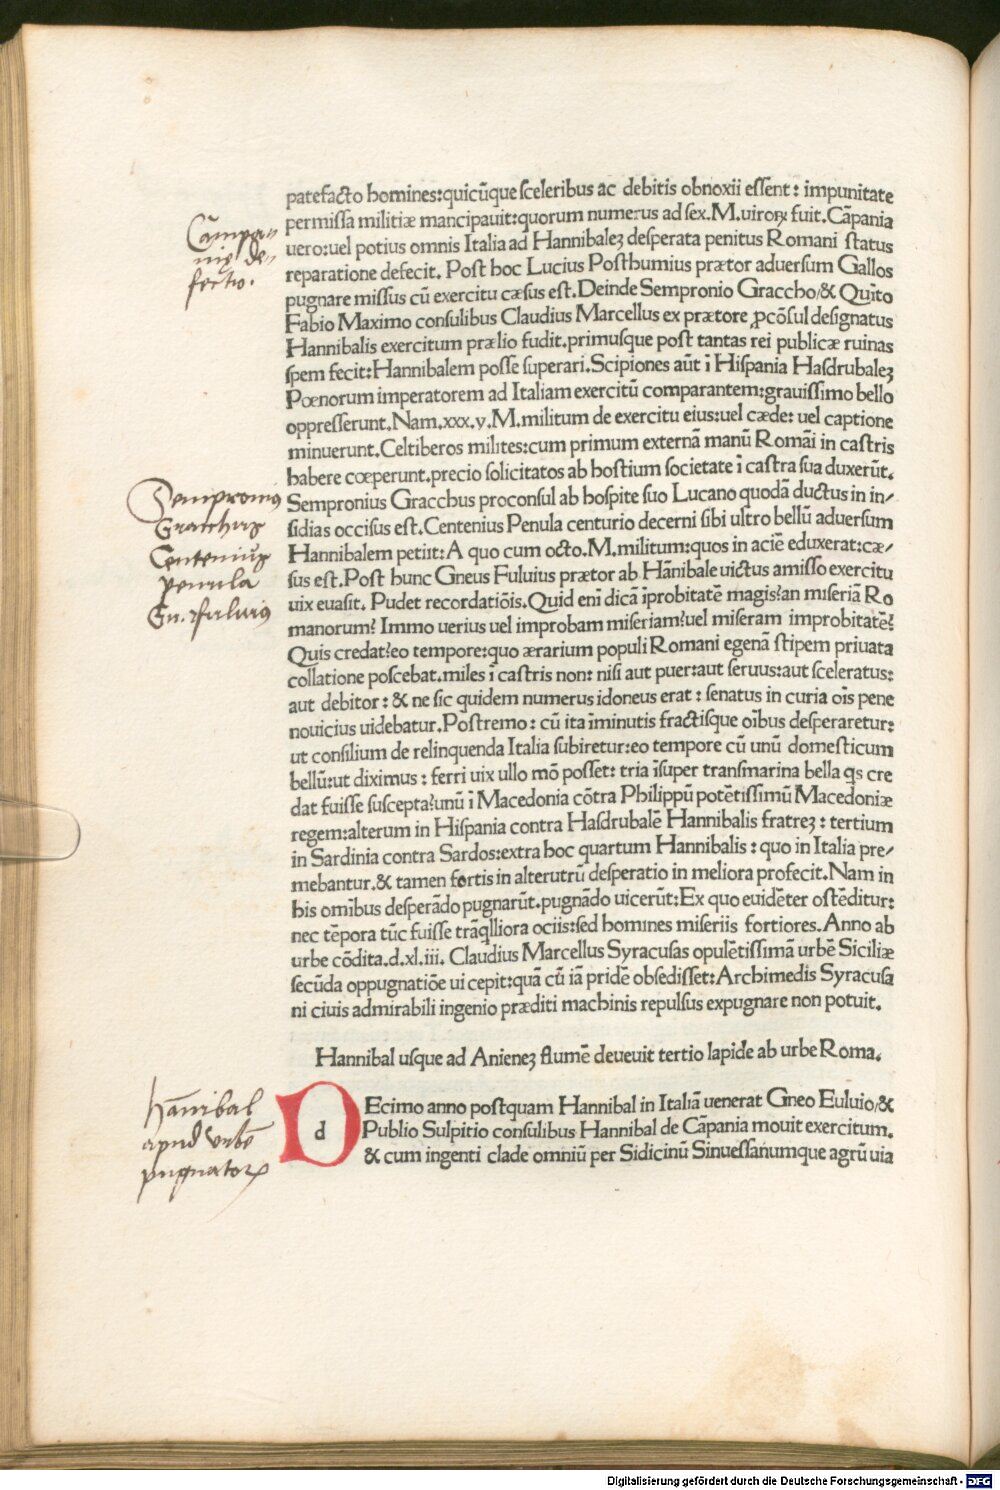 patefacto homines:quicūque sceleribus ac debitis obnoxii essent: impunitate
permissa militiæ mancipauit:quorum numerus ad sex.M.uiroꝝ fuit.Cāpania
uero:uel potius omnis Italia ad Hannibaleꝫ desperata penitus Romani status
reparatione defecit. Post hoc Lucius Posthumius prætor aduersum Gallos
pugnare missus cū exercitu cæsus est.Deinde Sempronio Graccho/& Quīto
Fabio Maximo consulibus Claudius Marcellus ex prætore ꝓcōsul designatus
Hannibalis exercitum prælio fudit.primusque post tantas rei publicæ ruinas
spem fecit:Hannibalem posse superari.Scipiones aūt ī Hispania Hasdrubaleꝫ
Pœnorum imperatorem ad Italiam exercitū comparantem:grauissimo bello
oppresserunt.Nam.xxx.y.M.militum de exercitu eius:uel cæde: uel captione
minuerunt.Celtiberos milites:cum primum externā manū Romāi in castris
habere cœperunt.precio solicitatos ab hostium societate ī castra sua duxerūt.
Sempronius Gracchus proconsul ab hospite suo Lucano quodā ductus in in/
sidias occisus est.Centenius Penula centurio decerni sibi ultro bellū aduersum
Hannibalem petiit:A quo cum octo.M.militum:quos in aciē eduxerat:cæ/
sus est.Post hunc Gneus Fuluius prætor ab Hānibale uictus amisso exercitu
uix euasit. Pudet recordatiōis.Quid eni dicā īprobitatē magis?an miseriā Ro
manorum? Immo uerius uel improbam miseriam?uel miseram improbitatē?
Quis credat?eo tempore:quo ærarium populi Romani egenā stipem priuata
collatione poscebat.miles ī castris non: nisi aut puer:aut seruus:aut sceleratus:
aut debitor: & ne sic quidem numerus idoneus erat: senatus in curia oīs pene
nouicius uidebatur.Postremo: cū ita īminutis fractisque oībus desperaretur:
ut consilium de relinquenda Italia subiretur:eo tempore cū unū domesticum
bellū:ut diximus: ferri uix ullo mō posset: tria īsuper transmarina bella qs cre
dat fuisse suscepta?unū ī Macedonia cōtra Philippū potētissimū Macedoniæ
regem:alterum in Hispania contra Hasdrubalē Hannibalis fratreꝫ: tertium
in Sardinia contra Sardos:extra hoc quartum Hannibalis: quo in Italia pre/
mebantur.& tamen fortis in alterutrū desperatio in meliora profecit.Nam in
his omibus desperādo pugnarūt.pugnādo uicerūt:Ex quo euidēter ostēditur:
nec tēpora tūc fuisse trāqlliora ociis:sed homines miseriis fortiores.Anno ab
urbe cōdita.d.xl.iii. Claudius Marcellus Syracusas opulētissimā urbē Siciliæ
secūda oppugnatiōe ui cepit:quā cū iā pridē obsedisset:Archimedis Syracusa
ni ciuis admirabili ingenio præditi machinis repulsus expugnare non potuit.
Hannibal usque ad Anieneꝫ flumē deueuit tertio lapide ab urbe Roma.
d
DEcimo anno postquam Hannibal in Italiā uenerat Gneo Euluio/&
Publio Sulpitio consulibus Hannibal de Cāpania mouit exercitum.
& cum ingenti clade omniū per Sidicinū Sinuessanumque agrū uia
Campa⸗
nię de⸗
fectio.
Sempronius
Gracchus
Centenius
penula
Gn. fuluius
Hānibal
apud vrbē
pugnatoꝝ
Digitalisierung gefördert durch die Deutsche Forschungsgemeinschaft - DFG